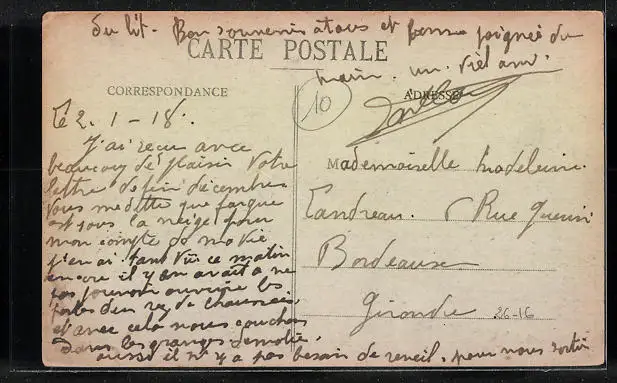 du lit. Bon souvenir à tous et bonne poignée de
main. un viel ami.
CARTE POSTALE
CORRESPONDANCE
ADRESSE
10
Le 2. 1 - 18.
J'ai reçu avec
beaucoup de plaisir votre
lettre de fin décembre
vous me dites que
est sous la neige pour
mon compte de ma vie
j'en ai tant vu ce matin
encore il y en avait a ne
pas pouvoir ouvrire les
portes du rez de chaussée.
et avec cela nous couchons
Dans les granges demolie.
aussi il n'y a pas besoin de reveil. pour nous sortir
Mademoiselle Madeleine.
Landreau. Rue
Bordeaux
Gironde
26-16